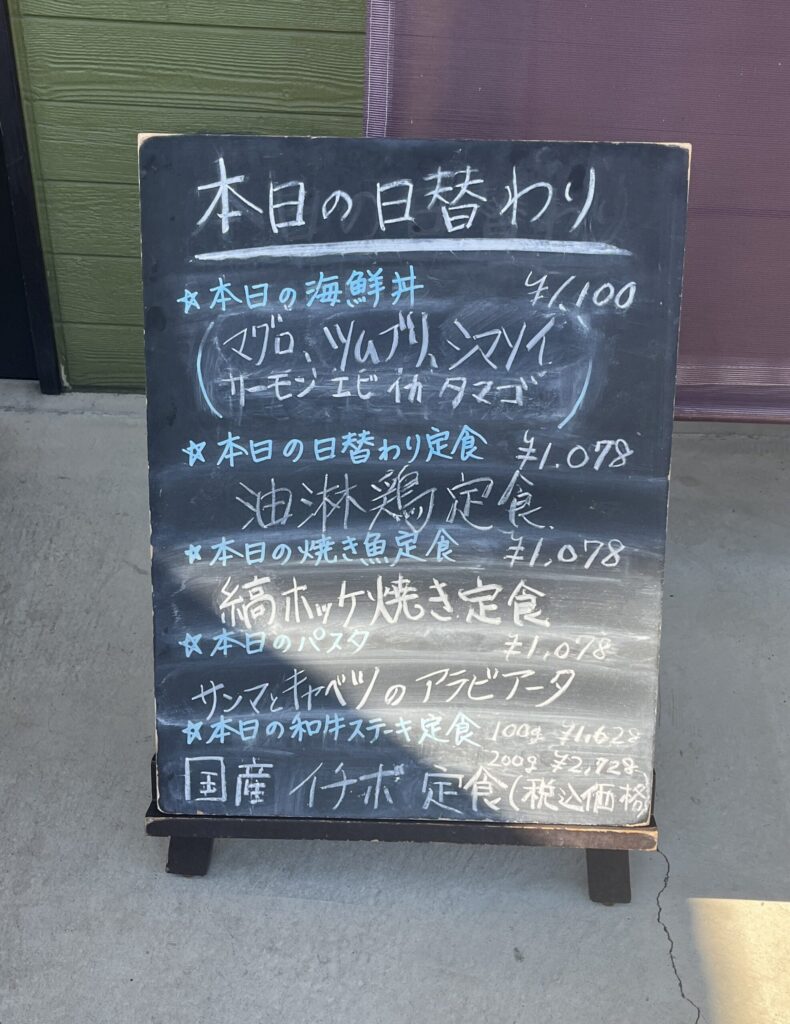 本日の日替わり
☆本日の海鮮丼 ¥1,100
(マグロ、ツムブリ、シマソイ
サーモン エビ イカ タマゴ)
☆本日の日替わり定食 ¥1.078
油淋鶏定食
☆本日の焼き魚定食 ¥1,078
縞ホッケ焼き定食
☆本日のパスタ ¥1,078
サンマとキャベツのアラビアータ
☆本日の和牛ステーキ定食 100g ¥1,628
200g ¥2,728
国産 イチボ 定食(税込価格)